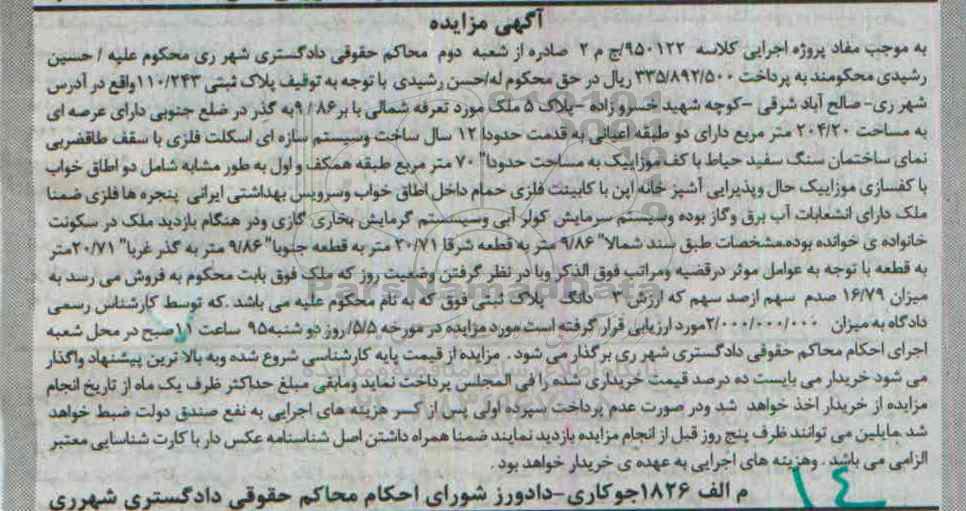 آگهی مزایده
به موجب مفاد پروژه اجرایی کلاسه ۹۵۰۱۲۲/ج م ۲ صادره از شعبه دوم محاکم حقوقی دادگستری شهر ری محکوم علیه / حسین
رشیدی محکومند به پرداخت ۳۳۵/۸۹۲/۵۰۰ ریال در حق محکوم له/حسن رشیدی با توجه به توقیف پلاک ثبتی ۱۱۰/۲۴۳واقع در آدرس
شهر ری- صالح آباد شرقی -کوچه شهید خسرو زاده -پلاک ۵ ملک مورد تعرفه شمالی با بر ۹/۸۶به گذر در ضلع جنوبی دارای عرصه ای
به مساحت ۲۰۴/۲۰ متر مربع دارای دو طبقه اعیانی به قدمت حدودا ۱۲ سال ساخت وسیستم سازه ای اسکلت فلزی با سقف طاقضربی
نمای ساختمان سنگ سفید حیاط با کف موزاییک به مساحت حدودا" ۷۰ متر مربع طبقه همکف و اول به طور مشابه شامل دو اطاق خواب
با کفسازی موزاییک حال وپذیرایی آشپز خانه اپن با کابینت فلزی حمام داخل اطاق خواب وسرویس بهداشتی ایرانی پنجره ها فلزی ضمنا
ملک دارای انشعابات آب برق وگاز بوده وسیستم سرمایش کولر آبی وسیسستم گرمایش بخاری گازی ودر هنگام بازدید ملک در سکونت
خانواده ی خوانده بوده.مشخصات طبق سند شمالا" ۹/۸۶ متر به قطعه شرقا ۲۰/۷۱ متر به قطعه جنوبا" ۹/۸۶ متر به گذر غربا" ۲۰/۷۱متر
به قطعه با توجه به عوامل موثر درقضیه ومراتب فوق الذکر وبا در نظر گرفتن وضعیت روز که ملک فوق بابت محکوم به فروش می رسد به
میزان ۱۶/۷۹ صدم سهم ازصد سهم که ارزش ۳ دانگ پلاک ثبتی فوق که به نام محکوم علیه می باشد .که توسط کارشناس رسمی
دادگاه به میزان ۲/۰۰۰/۰۰۰/۰۰۰مورد ارزیابی قرار گرفته است.مورد مزایده در مورخه ۵/۵/روز دو شنبه۹۵ ساعت ۱۱صبح در محل شعبه
اجرای احکام محاکم حقوقی دادگستری شهر ری برگذار می شود . مزایده از قیمت پایه کارشناسی شروع شده وبه بالا ترین پیشنهاد واگذار
می شود خریدار می بایست ده درصد قیمت خریداری شده را فی المجلس پرداخت نماید ومابقی مبلغ حداکثر ظرف یک ماه از تاریخ انجام
مزایده از خریدار اخذ خواهد شد ودر صورت عدم پرداخت سپرده اولی پس از کسر هزینه های اجرایی به نفع صندق دولت ضبط خواهد
شد.مایلین می توانند ظرف پنج روز قبل از انجام مزایده بازدید نمایند ضمنا همراه داشتن اصل شناسنامه عکس دار با کارت شناسایی معتبر
الزامی می باشد . وهزینه های اجرایی به عهده ی خریدار خواهد بود .
م الف ۱۸۲۶جوکاری-دادورز شورای احکام محاکم حقوقی دادگستری شهرری
۱۴
ParsNamadData